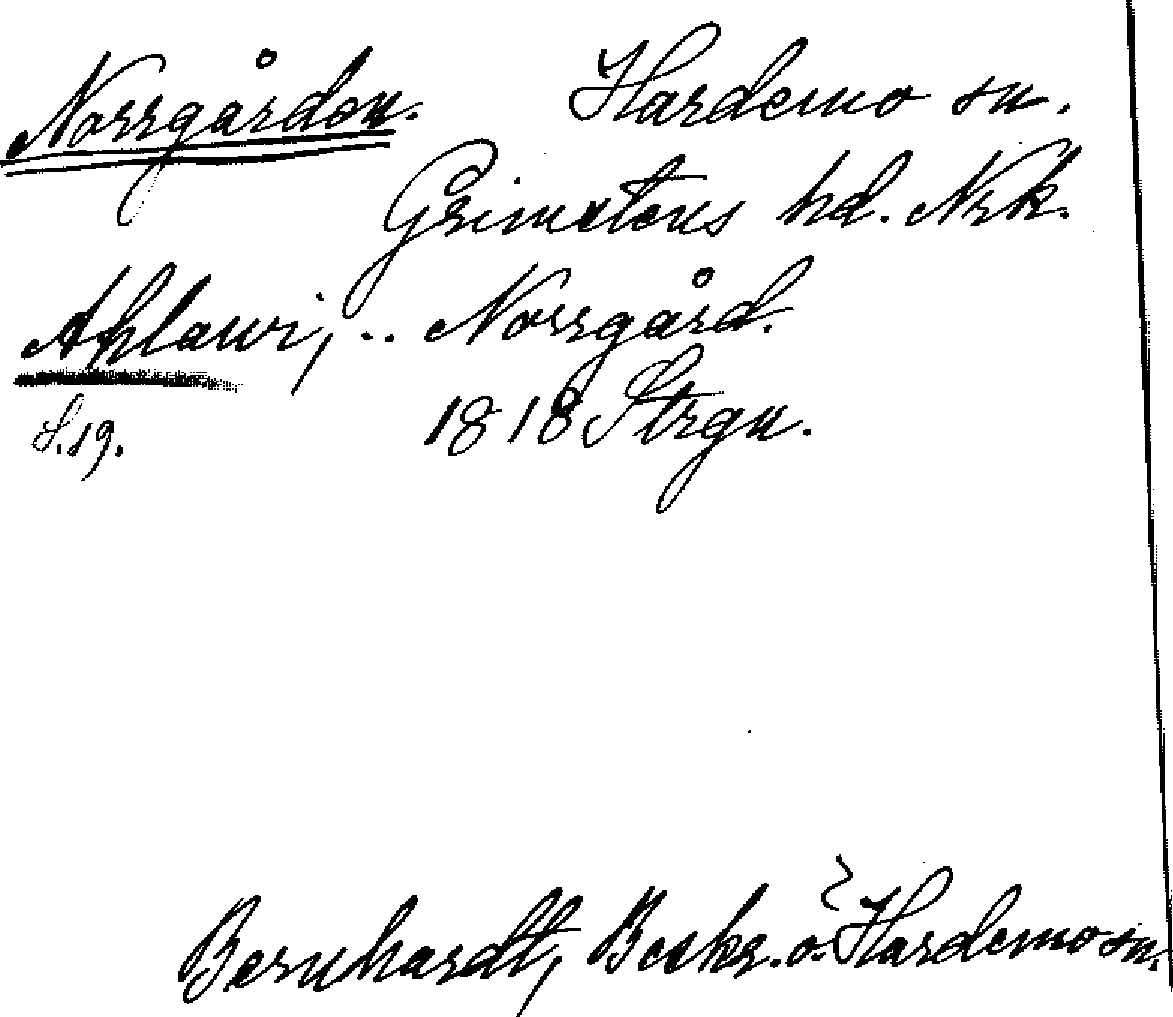 Norrgården. Hardemo sn.
Grimstens hd. Nrk.
Ahlawi, .. Norrgård.
S.19. 1818 Strgn.
Bernhardt, Beskr. o. Hardemo sn.